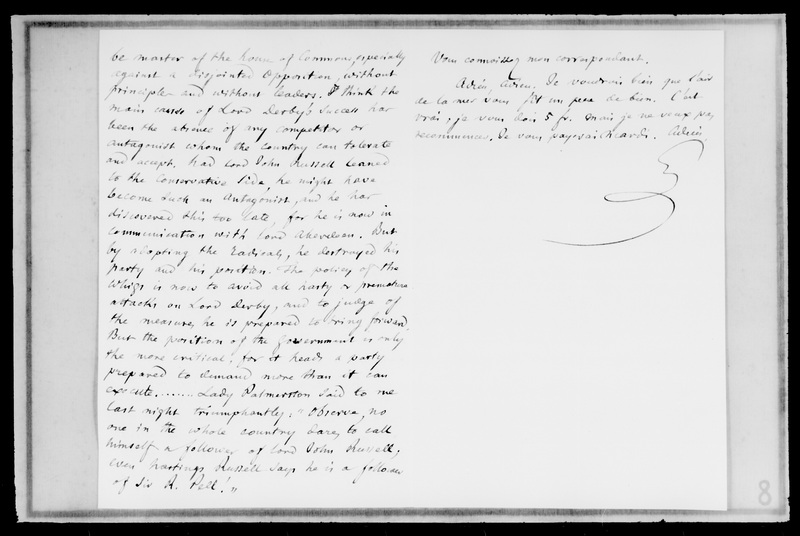 be master of the house of Commons, especially
against a disjointed Opposition, without
principle and without leaders. I think the
main causes of Lord Derby's success has
been the absence of any competitor or
antagonist whom the country can tolerate
and accept. Had Lord John Russell leaned
to the Conservative side, he might have
become such an Antagonist, and he has
discovered this too late, for he is now in
communication with Lord Aberdeen. But
by adopting the Radicals, he destroyed his
party and his position. The policy of the
Whigs is now to avoid all hasty or premature
attacks on Lord Derby, and to judge of
the measures he is prepared to bring forward.
But the position of the Government is only
the more critical, for it heads a party
prepared to demand more than it can
execute........ Lady Palmerston said to me
last night triumphantly: "Observe, no
one in the whole country dares to call
himself a follower of Lord John Russell;
even Hastings Russell says he is a follower
of Sir R. Peel!"
Vous connaissez mon correspondant.
Adieu, Adieu. Je voudrais bien que l'air
de la mer vous fît un peu de bien. C'est
vrai, je vous dois 5 fr. mais je ne veux pas
recommencer. Je vous payerai Adieu,
8